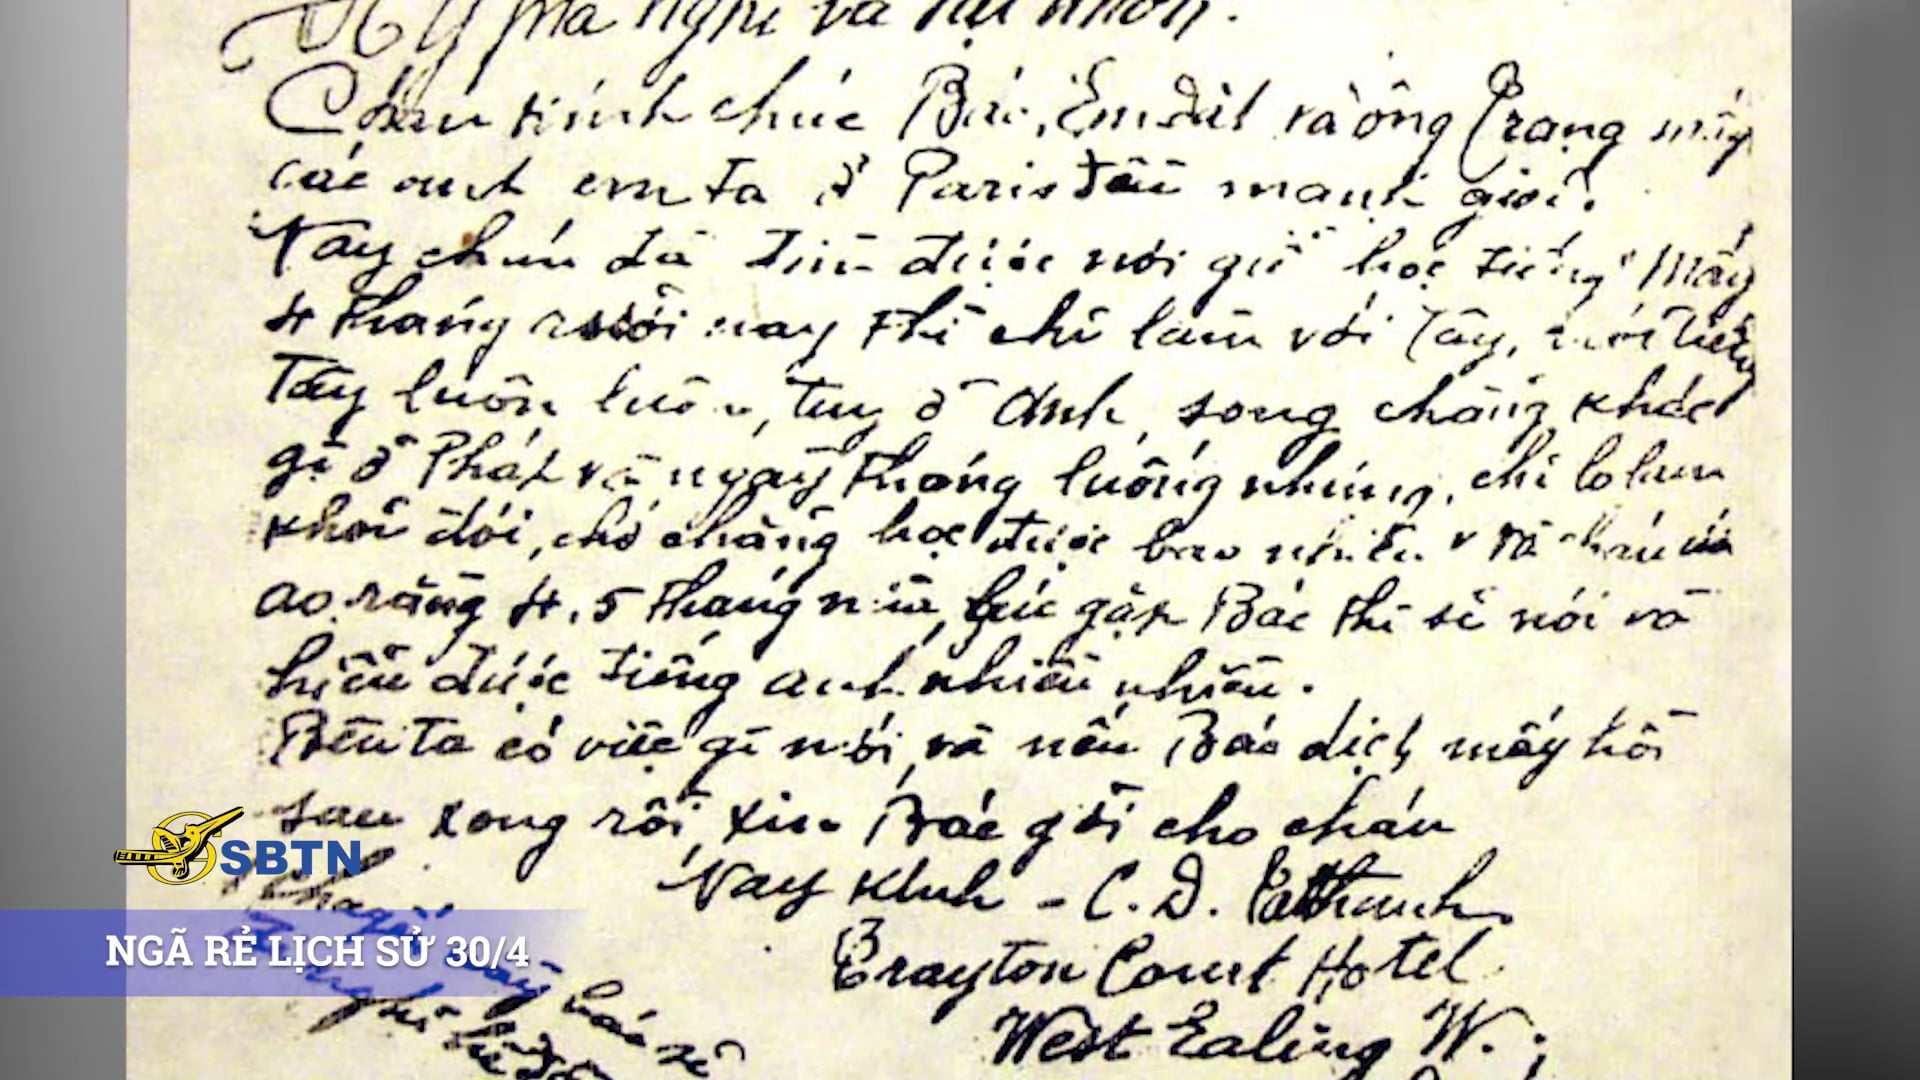 Hy Mã Nghi Bá Đại Nhơn.
Cháu kính chúc Bác, Em Dật và ông Trạng mấy
các anh em ta ở Paris đều mạnh giỏi.
Nay cháu đã tìm được nơi giữ học tiếng. Mấy
4 tháng rưỡi nay thì chỉ làm với Tây, nói tiếng
Tây luôn luôn, tuy ở Anh, song chẳng khác
gì ở Pháp và ngày tháng luống những, chỉ lo làm
khỏi đói, chớ chẳng học được bao nhiêu. Và cháu ước
ao rằng 4, 5 tháng nữa, lúc gặp Bác thì sẽ nói và
hiểu được tiếng anh nhiều nhiều.
Bên ta có việc gì mới, và nếu Bác dịch mấy hồi
sau xong rồi xin Bác gởi cho cháu
Nay kính - C. D. Tatthanh
Drayton Court Hotel
West Ealing W.
SBTN
NGÃ RẺ LỊCH SỬ 30/4